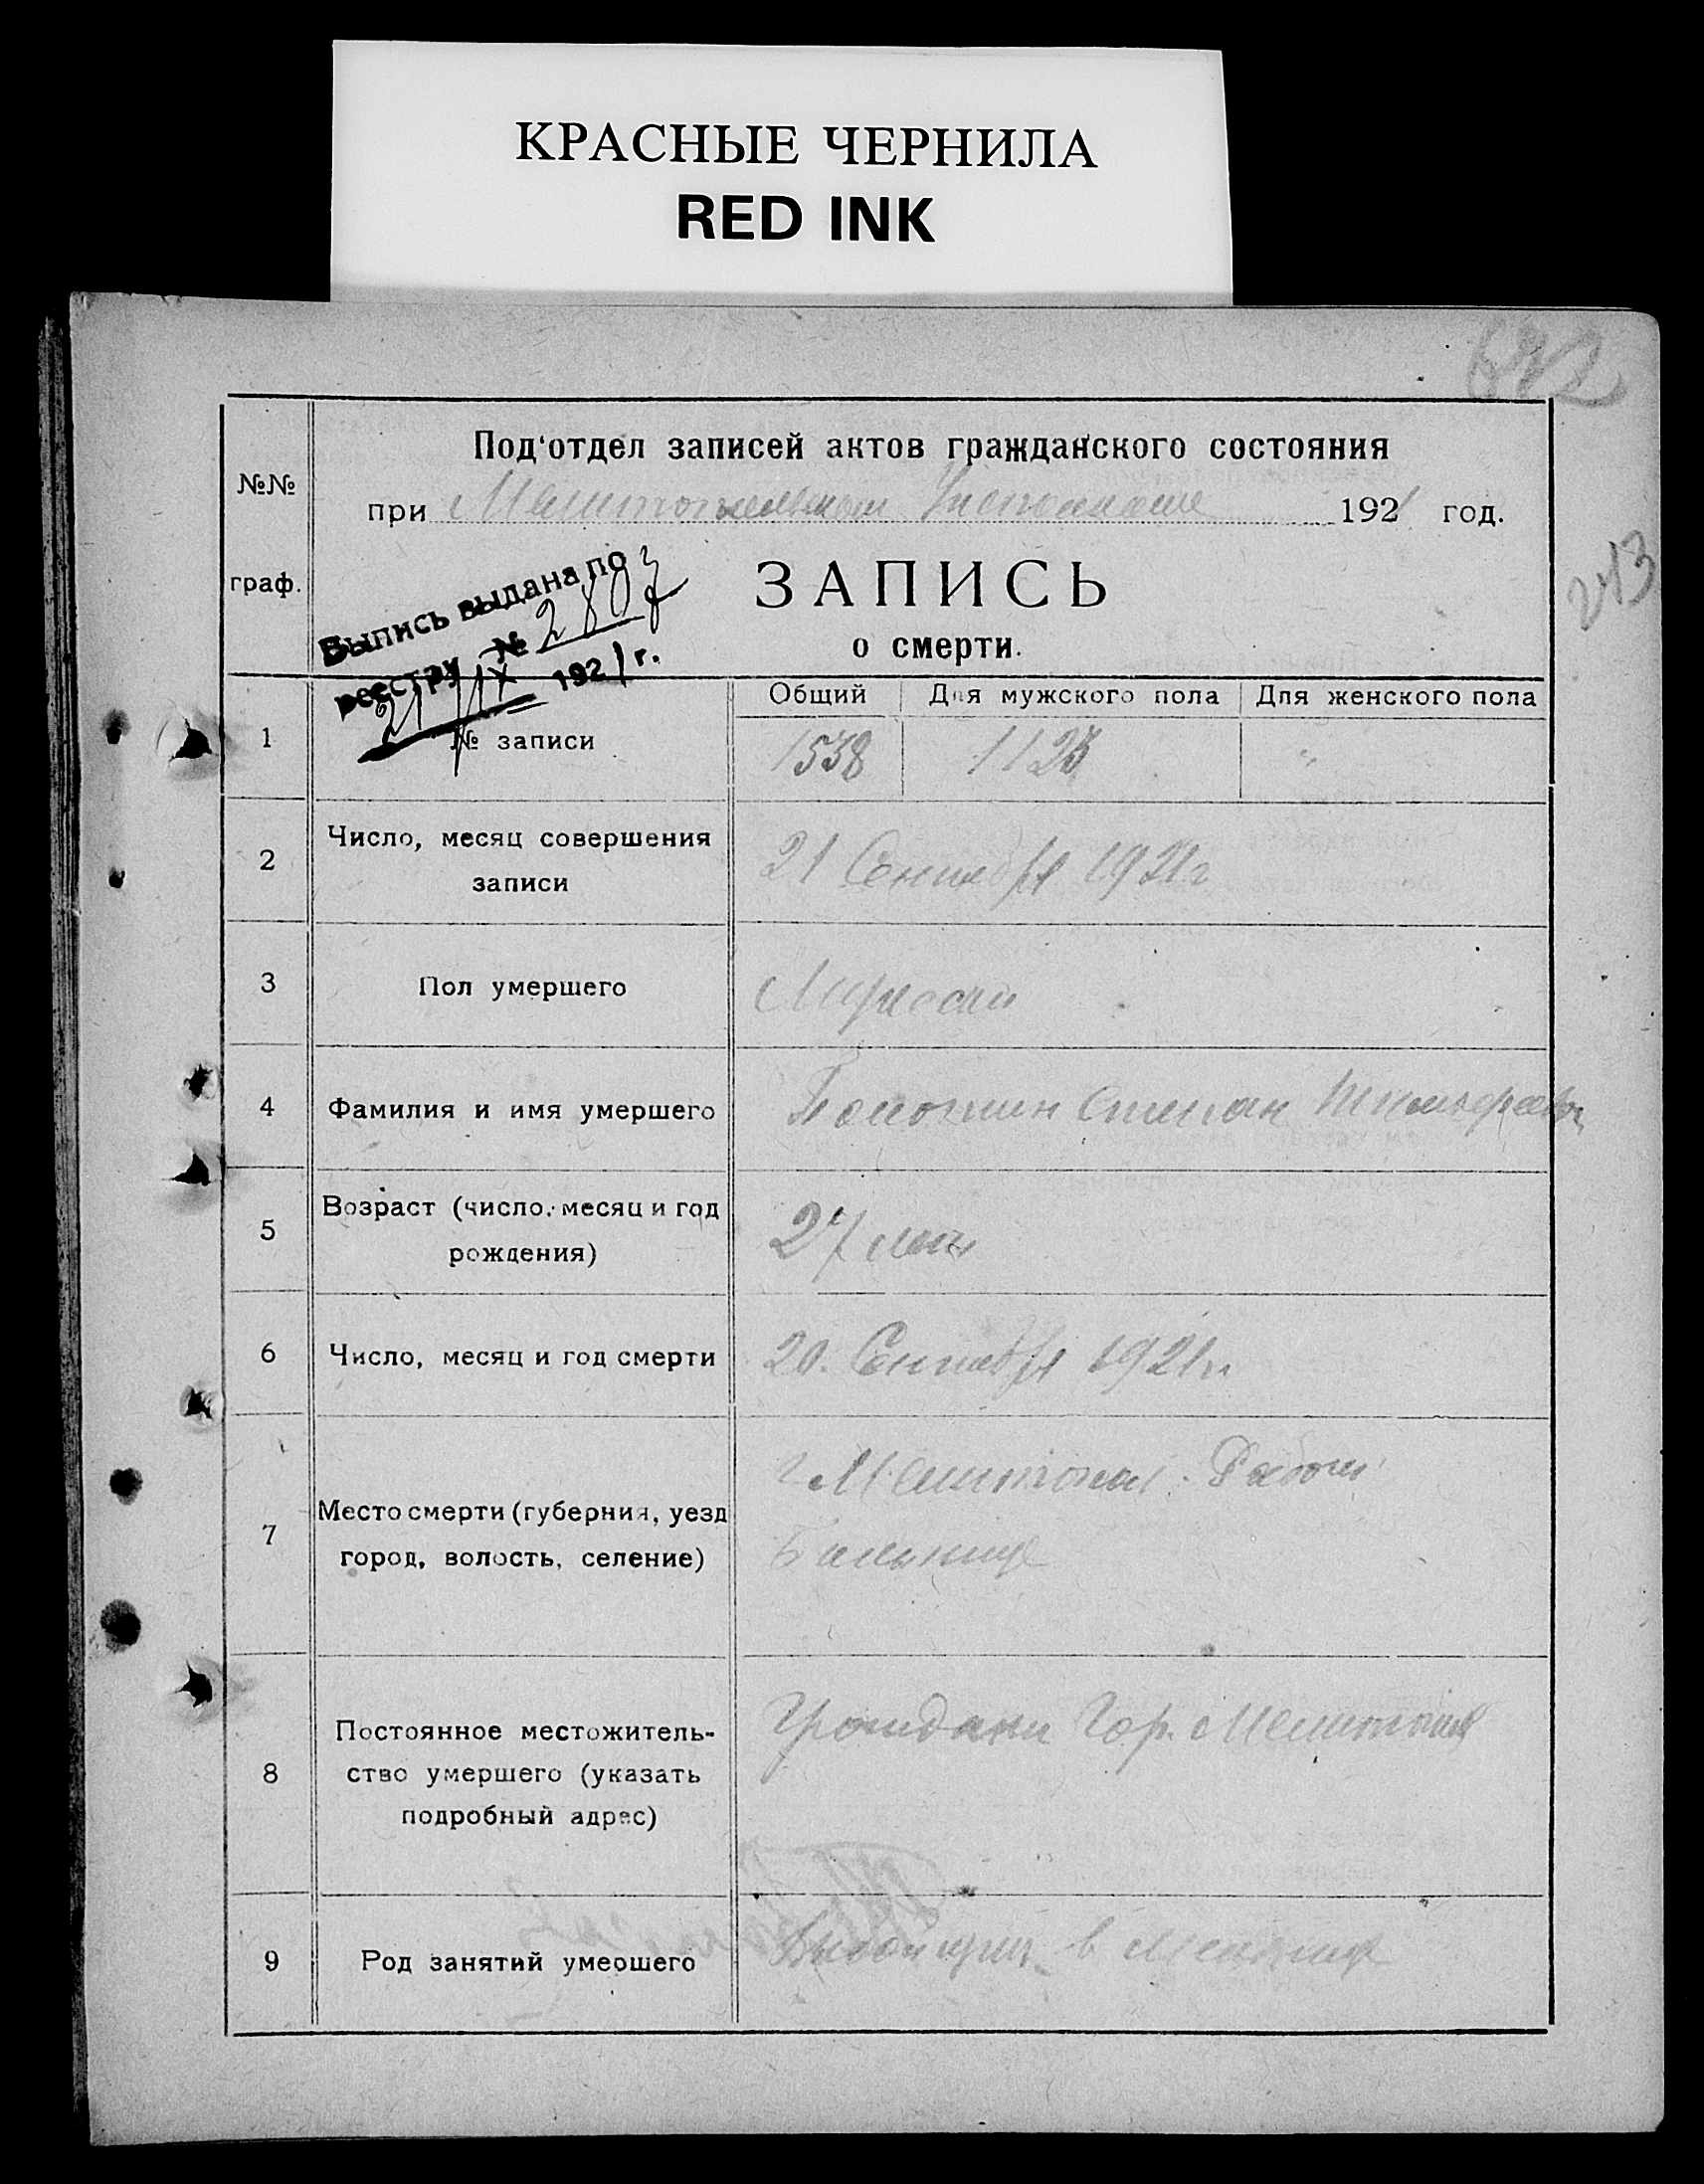 КРАСНЫЕ ЧЕРНИЛА
RED INK
Под'отдел записей актов гражданского состояния
№№
при Мелитопольском Исполкоме 1921 год.
243
граф.
Выпись выдана по
ЗАПИСЬ
реестру № 2807
о смерти.
21/IX 1921 г.
Общий Для мужского пола Для женского пола
1 № записи 1538 1123 "
2 Число, месяц совершения
записи
21 Сентября 1921 г
3 Пол умершего Мужской
4 Фамилия и имя умершего Степан
5 Возраст (число, месяц и год
рождения)
27 лет
6 Число, месяц и год смерти 20. Сентября 1921 г.
7 Место смерти (губерния, уезд
город, волость, селение)
г Мелитополь.
Больнице
8 Постоянное местожитель-
ство умершего (указать
подробный адрес)
Гор. Мелитополя
9 Род занятий умершего в